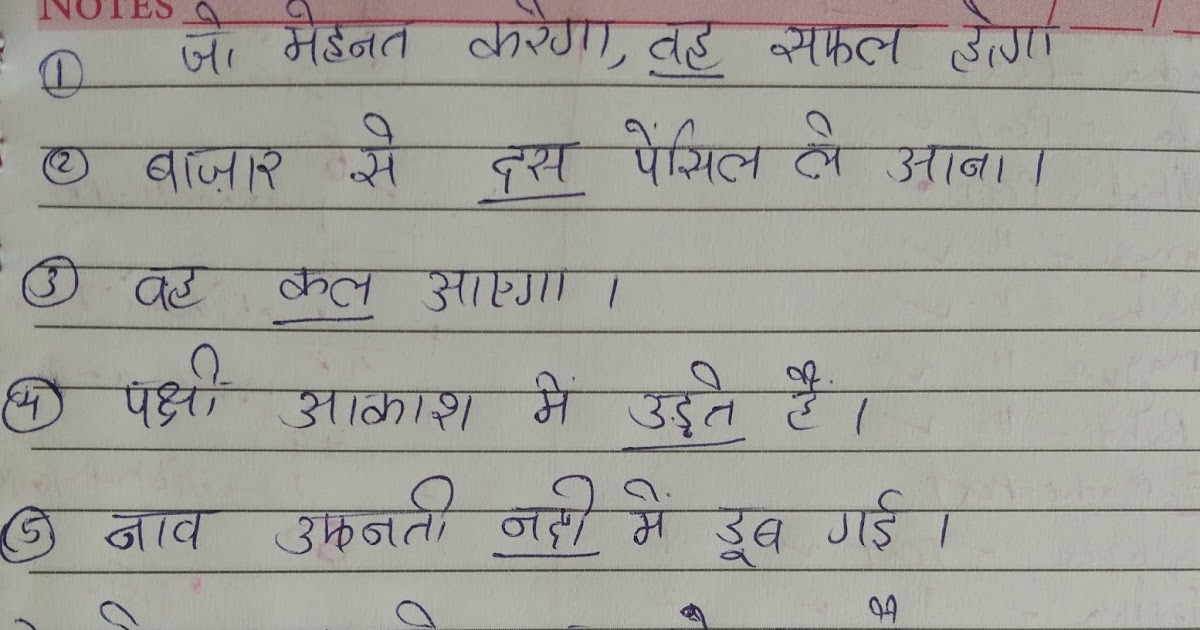 NOTES
① जो मेहनत करेगा, वह सफल होगा
② बाज़ार से दस पेंसिल ले आना।
③ वह कल आएगा।
④ पक्षी आकाश में उड़ते हैं।
⑤ नाव उफनती नदी में डूब गई।